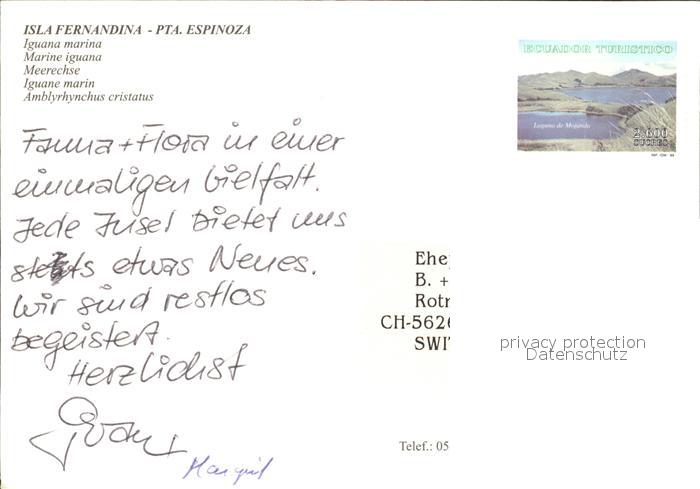 ISLA FERNANDINA - PTA. ESPINOZA
Iguana marina
Marine iguana
Meerechse
Iguane marin
Amblyrhynchus cristatus
ECUADOR TURISTICO
Laguna de Mojanda
2.600
SUCRES
Fauna + Flora in einer
einmaligen Vielfalt.
Jede Insel bietet uns
stets etwas Neues.
Wir sind restlos
begeistert.
Herzlichst
Ehe
B. +
Rotr
CH-5626
SWI
privacy protection
Datenschutz
Telef.: 05